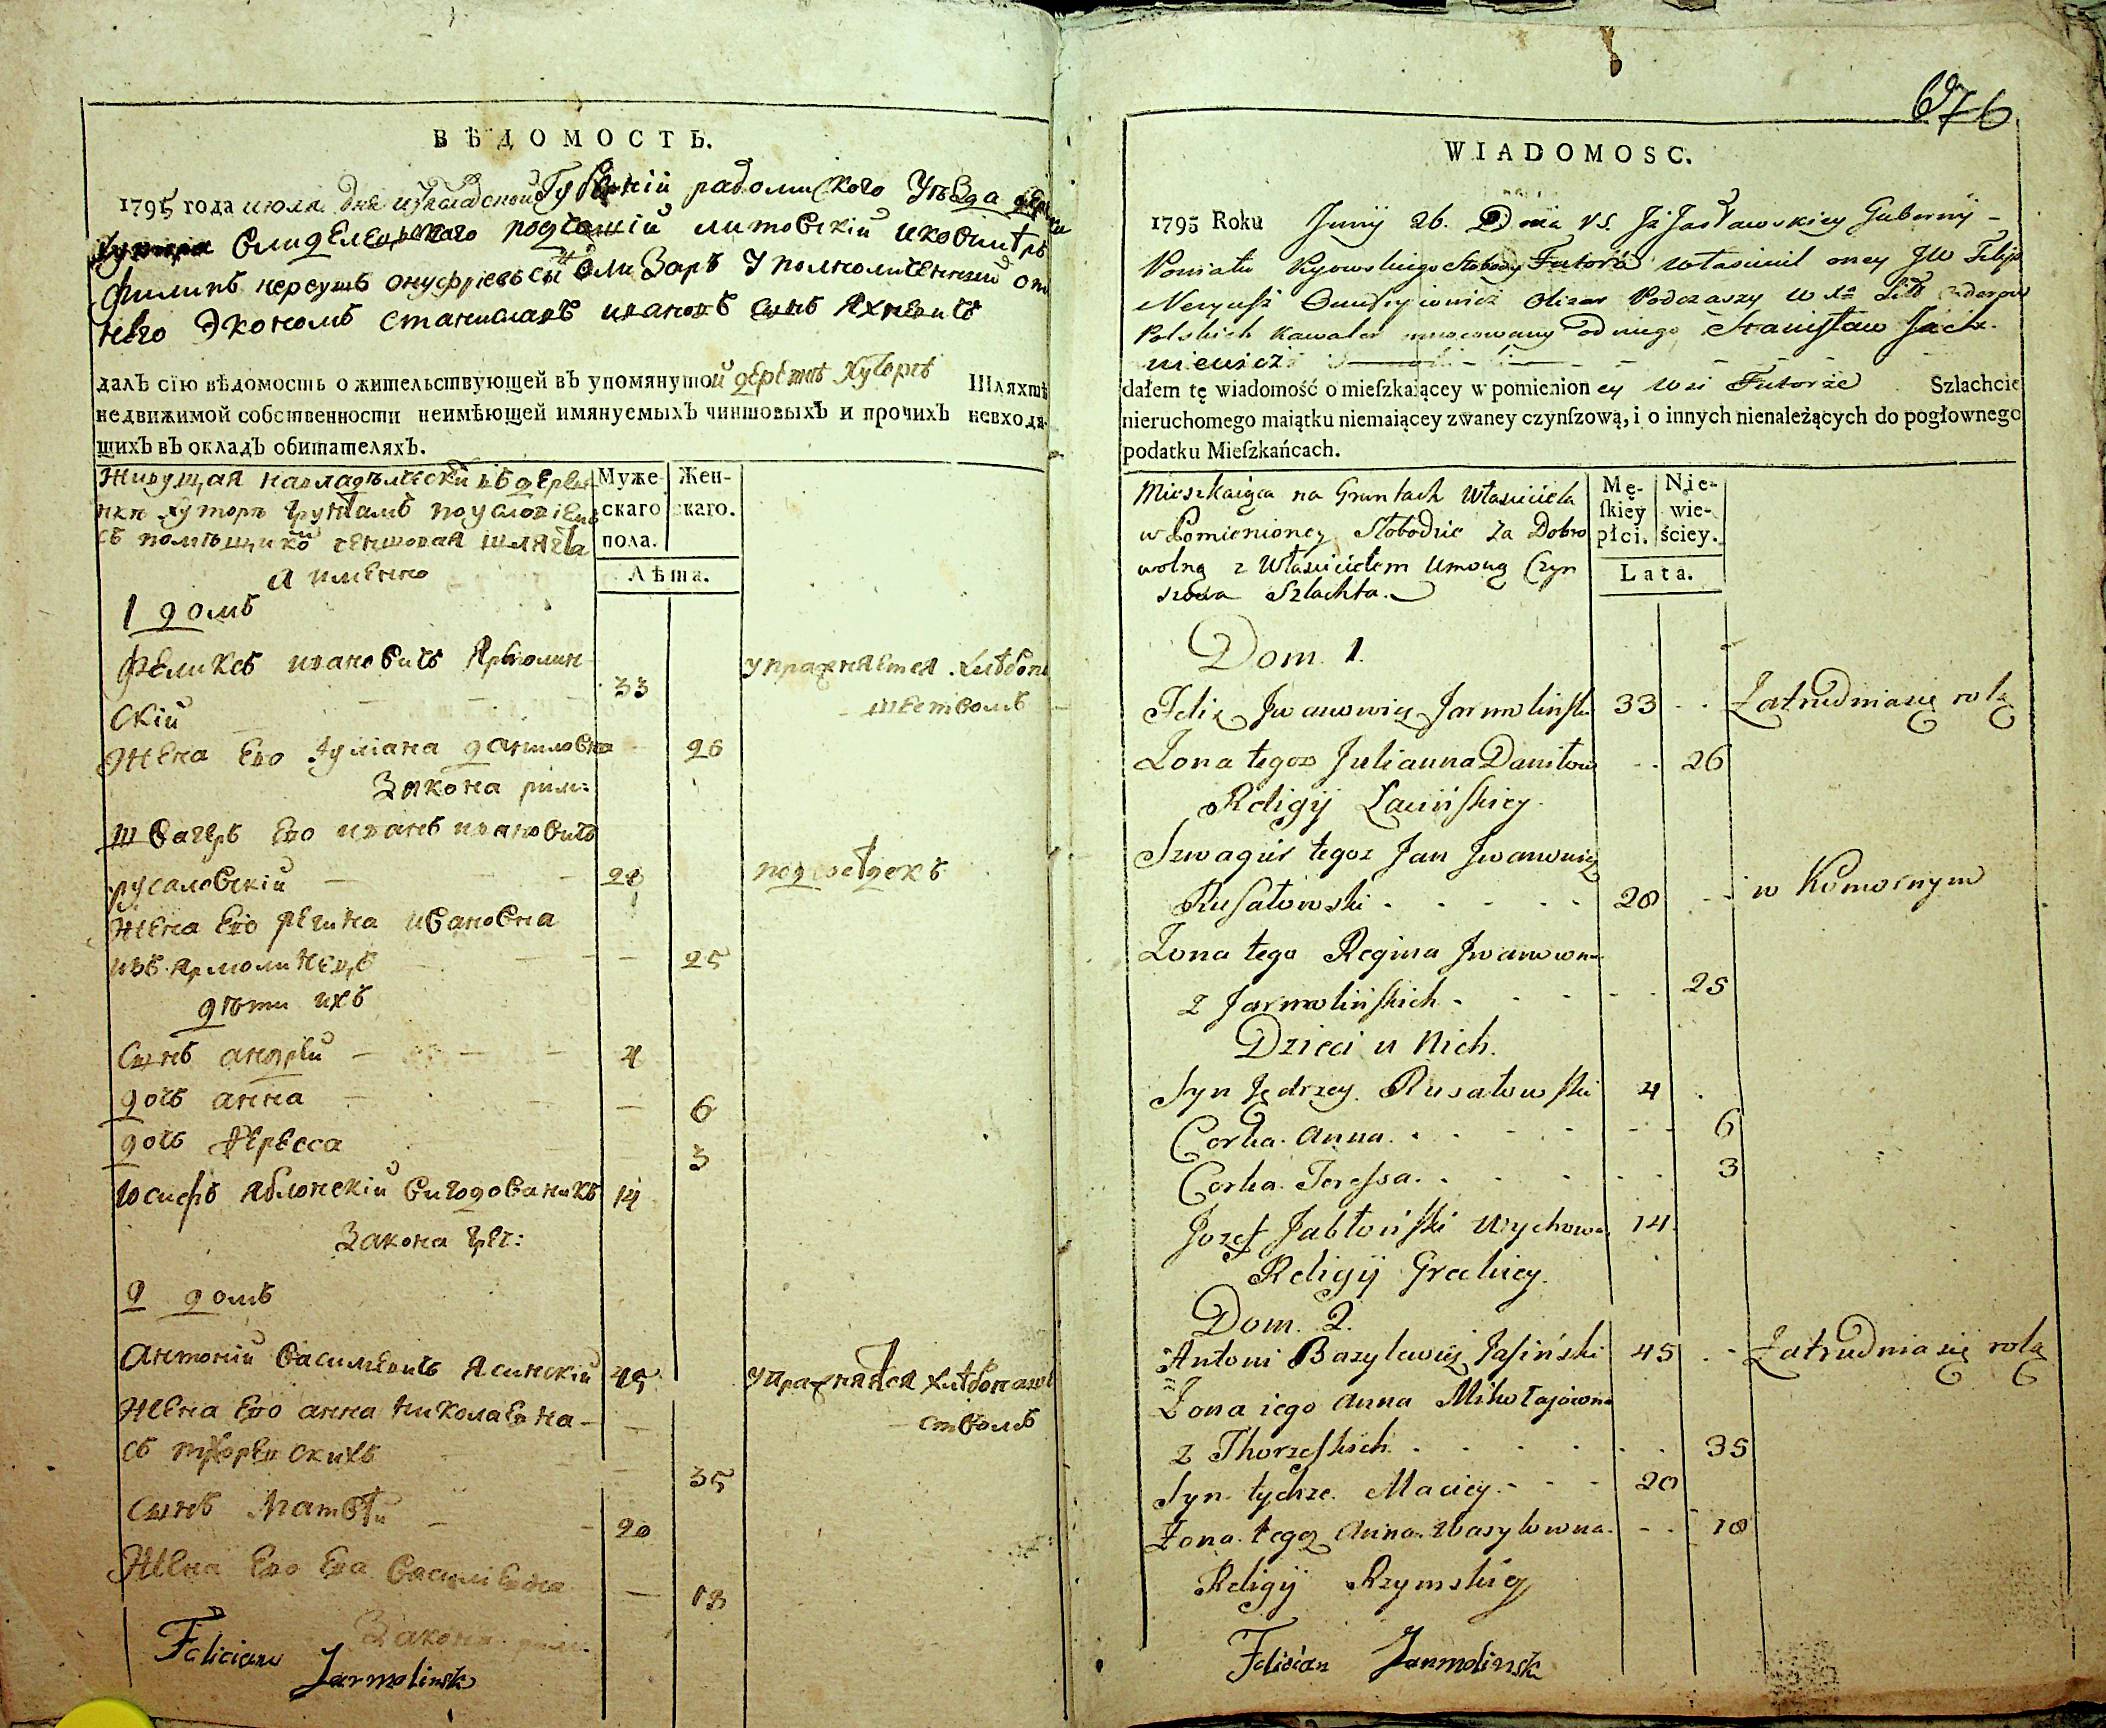 ВѢДОМОСТЬ.
1795 года июля дня Изяславской Губерній радомиского Уѣзда
подчашій литовскій иковалѣръ
филипъ нереушъ онуфріевъ сынъ олизаръ Уполномоченный от
него Экономъ станиславъ ивановъ сынъ яхневичь
далъ сїю вѣдомость о жительствующей въ упомянутой деревнѣ Хуторѣ Шляхтѣ
недвижимой собственности неимѣющей имянуемыхъ чиншовыхъ и прочихъ невходя-
щихъ въ окладъ обитателяхъ.
Живущая навладѣлческій въ дерев
нки хуторѣ грунтамъ поусловіемъ
съ помѣщико чиншовая шляхта
а именно
Муже-
скаго
пола.
Жен-
скаго.
Лѣта.
1 домъ
Феликсъ ивановичъ Ярмолин-
скій 33 упражняется хлѣбопа
шеством
Жена Его Іуліана даниловна 26
Закона рим:
швагеръ Его иванъ ивановичъ
русаловскій 28 подсоседокъ
Жена Его регина ивановна
изъ Ярмолинецъ 25
дѣти ихъ
Сынъ андрей 4
дочь анна 6
дочь Тересса 3
Юсифъ Яблонскій виходованикъ 14
Закона грег:
2 домъ
антоній Василевичъ Ясинскій 45 упражняйся хлѣбопаше
ством
Жена Его анна николаевна
съ тхоревскихъ 35
Сынъ Матвѣй 20
Жена Его Ева Василіевна 18
Закона рим.
Felician
Jarmolinsk
676
WIADOMOSC.
1795 Roku Juny 26. Dnia V S. Jzjasławskiey Guberny
Powiatu Kyowskiego Słobody Futora własciciel oney JW Filip
Neryusz Onufryiowicz Olizar Podczaszy W Xa Litt Orderow
Polskich Kawaler umocowany od niego Stanisław Jach-
niewicz
dałem tę wiadomość o mieſzkaiącey w pomienioney wsi Futorze Szlachcie
nieruchomego maiątku niemaiącey zwaney czynſzową, i o innych nienależących do pogłownego
podatku Mieſzkańcach.
Mieszkaiąca na Gruntach własciciela
w Pomienioney Słobodzie za Dobro
wolną z własicielem umową Czyn
szowa Szlachta.
Mę-
ſkiey
płci.
Nie-
wie-
ściey.
Lata.
Dom. 1.
Felix Jwanowicz Jarmolińsk 33 Zatrudnia się rolą
Zona tegoz Julianna Daniłow 26
Religij Łacińskiey.
Szwagier tegoz Jan Jwanowicz
Rusałowski 28 w Komornym
Zona tego Regina Jwanowna
z Jarmolińskich 25
Dzieci u Nich.
Syn Jędrzey Rusałowski 4
Corka Anna 6
Corka Teressa 3
Jozef Jabłoński wychowa 14
Religij Greckiey.
Dom. 2.
Antoni Bazylewicz Jasiński 45 Zatrudnia się rolą
Zona iego Anna Mikołajowna
z Thorzeskich 35
Syn tychze Maciey 20
Zona tegoz Anna Wasylowna 18
Religij Rzymskiey
Felician Jarmolinsk